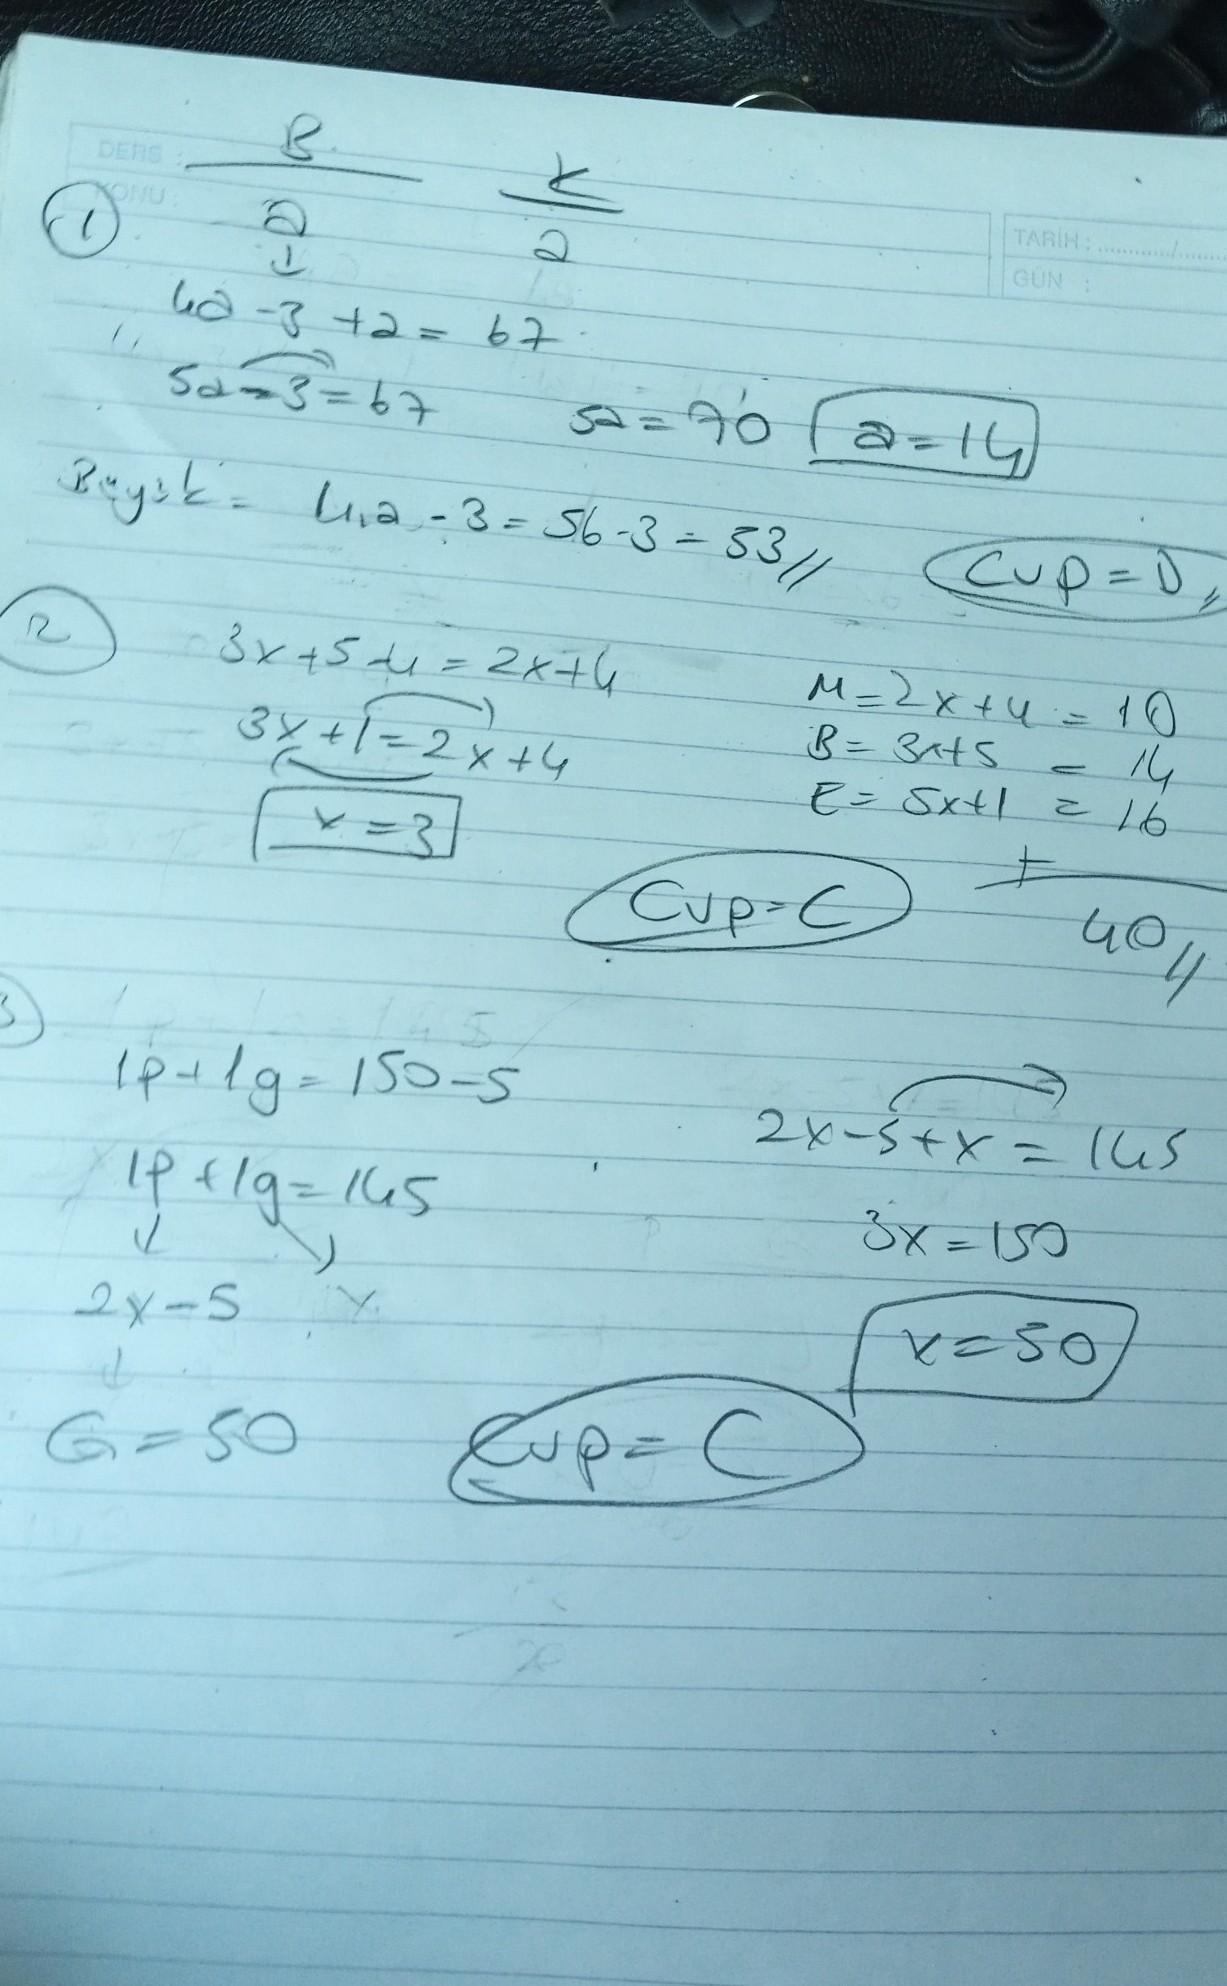 DERS :
KONU :
TARİH : ............/.......
GÜN :
B K
1 a a
4a - 3 + a = 67
5a - 3 = 67 5a = 70 a = 14
Büyük = 4.a - 3 = 56 - 3 = 53 //
Cvp = D //
2 3x + 5 - 4 = 2x + 4
3x + 1 = 2x + 4
x = 3
M = 2x + 4 = 10
B = 3x + 5 = 14
E = 5x + 1 = 16
+
40 //
Cvp = C
3
1p + 1g = 150 - 5
1p + 1g = 145
2x - 5 x
G = 50
2x - 5 + x = 145
3x = 150
x = 50
Cvp = C